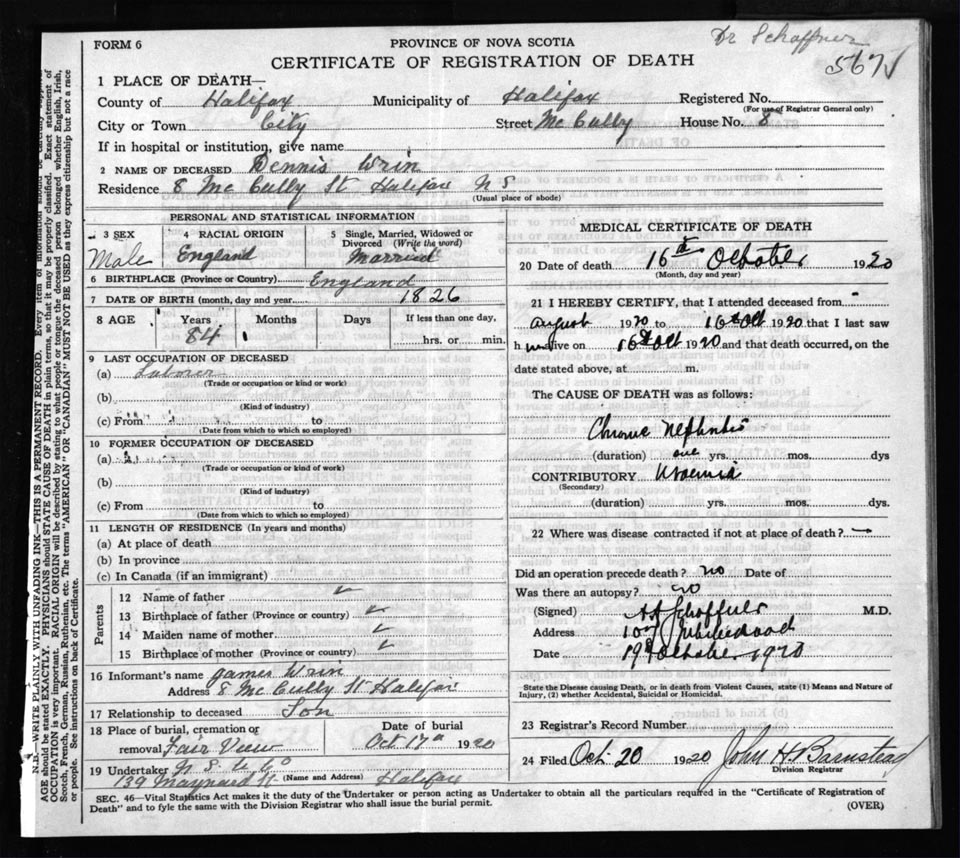 Dr Schaffner
567
FORM 6
PROVINCE OF NOVA SCOTIA
CERTIFICATE OF REGISTRATION OF DEATH
1 PLACE OF DEATH—
County of Halifax Municipality of Halifax Registered No.
(For use of Registrar General only)
City or Town City Street Mc Cully House No. 8
If in hospital or institution, give name
2 NAME OF DECEASED Dennis Wrin
Residence 8 Mc Cully St Halifax N S
(Usual place of abode)
PERSONAL AND STATISTICAL INFORMATION
3 SEX 4 RACIAL ORIGIN 5 Single, Married, Widowed or Divorced (Write the word)
Male England Married
6 BIRTHPLACE (Province or Country) England
7 DATE OF BIRTH (month, day and year) 1826
8 AGE Years Months Days If less than one day,
84 hrs. or min.
9 LAST OCCUPATION OF DECEASED
(a) Laborer
(Trade or occupation or kind or work)
(b)
(Kind of industry)
(c) From to
(Date from which to which so employed)
10 FORMER OCCUPATION OF DECEASED
(a)
(Trade or occupation or kind of work)
(b)
(Kind of industry)
(c) From to
(Date from which to which so employed)
11 LENGTH OF RESIDENCE (In years and months)
(a) At place of death
(b) In province
(c) In Canada (if an immigrant)
Parents
12 Name of father
13 Birthplace of father (Province or country)
14 Maiden name of mother
15 Birthplace of mother (Province or country)
16 Informant's name James Wrin
Address 8 Mc Cully St Halifax
17 Relationship to deceased Son
18 Place of burial, cremation or Date of burial
removal Fair View Oct 17th 1920
19 Undertaker N S U Co
139 Maynard St (Name and Address) Halifax
MEDICAL CERTIFICATE OF DEATH
20 Date of death 16th October 1920
(Month, day and year)
21 I HEREBY CERTIFY, that I attended deceased from
August 1920 to 16th Oct 1920 that I last saw
h im alive on 16th Oct 1920 and that death occurred, on the
date stated above, at m.
The CAUSE OF DEATH was as follows:
Chronic Nephritis
(duration) one yrs. mos. dys
CONTRIBUTORY Uraemia
(Secondary)
(duration) yrs. mos. dys.
22 Where was disease contracted if not at place of death?
Did an operation precede death? no Date of
Was there an autopsy? no
(Signed) Schaffner M.D.
Address
Date 19th October 1920
State the Disease causing Death, or in death from Violent Causes, state (1) Means and Nature of
Injury, (2) whether Accidental, Suicidal or Homicidal.
23 Registrar's Record Number
24 Filed Oct. 20 1920 John H Barnstead
Division Registrar
SEC. 46—Vital Statistics Act makes it the duty of the Undertaker or person acting as Undertaker to obtain all the particulars required in the "Certificate of Registration of
Death" and to fyle the same with the Division Registrar who shall issue the burial permit. (OVER)
N.B.—WRITE PLAINLY WITH UNFADING INK—THIS IS A PERMANENT RECORD. Every item of information should be carefully supplied.
AGE should be stated EXACTLY. PHYSICIANS should STATE CAUSE OF DEATH in plain terms, so that it may be properly classified. Exact statement of
OCCUPATION is very important. RACIAL ORIGIN will be described by stating to what people or tongue the deceased person belonged, whether English, Irish,
Scotch, French, German, Russian, Ruthenian, etc. The terms "AMERICAN" OR "CANADIAN" MUST NOT BE USED as they express citizenship but not a race
or people. See instructions on back of Certificate.